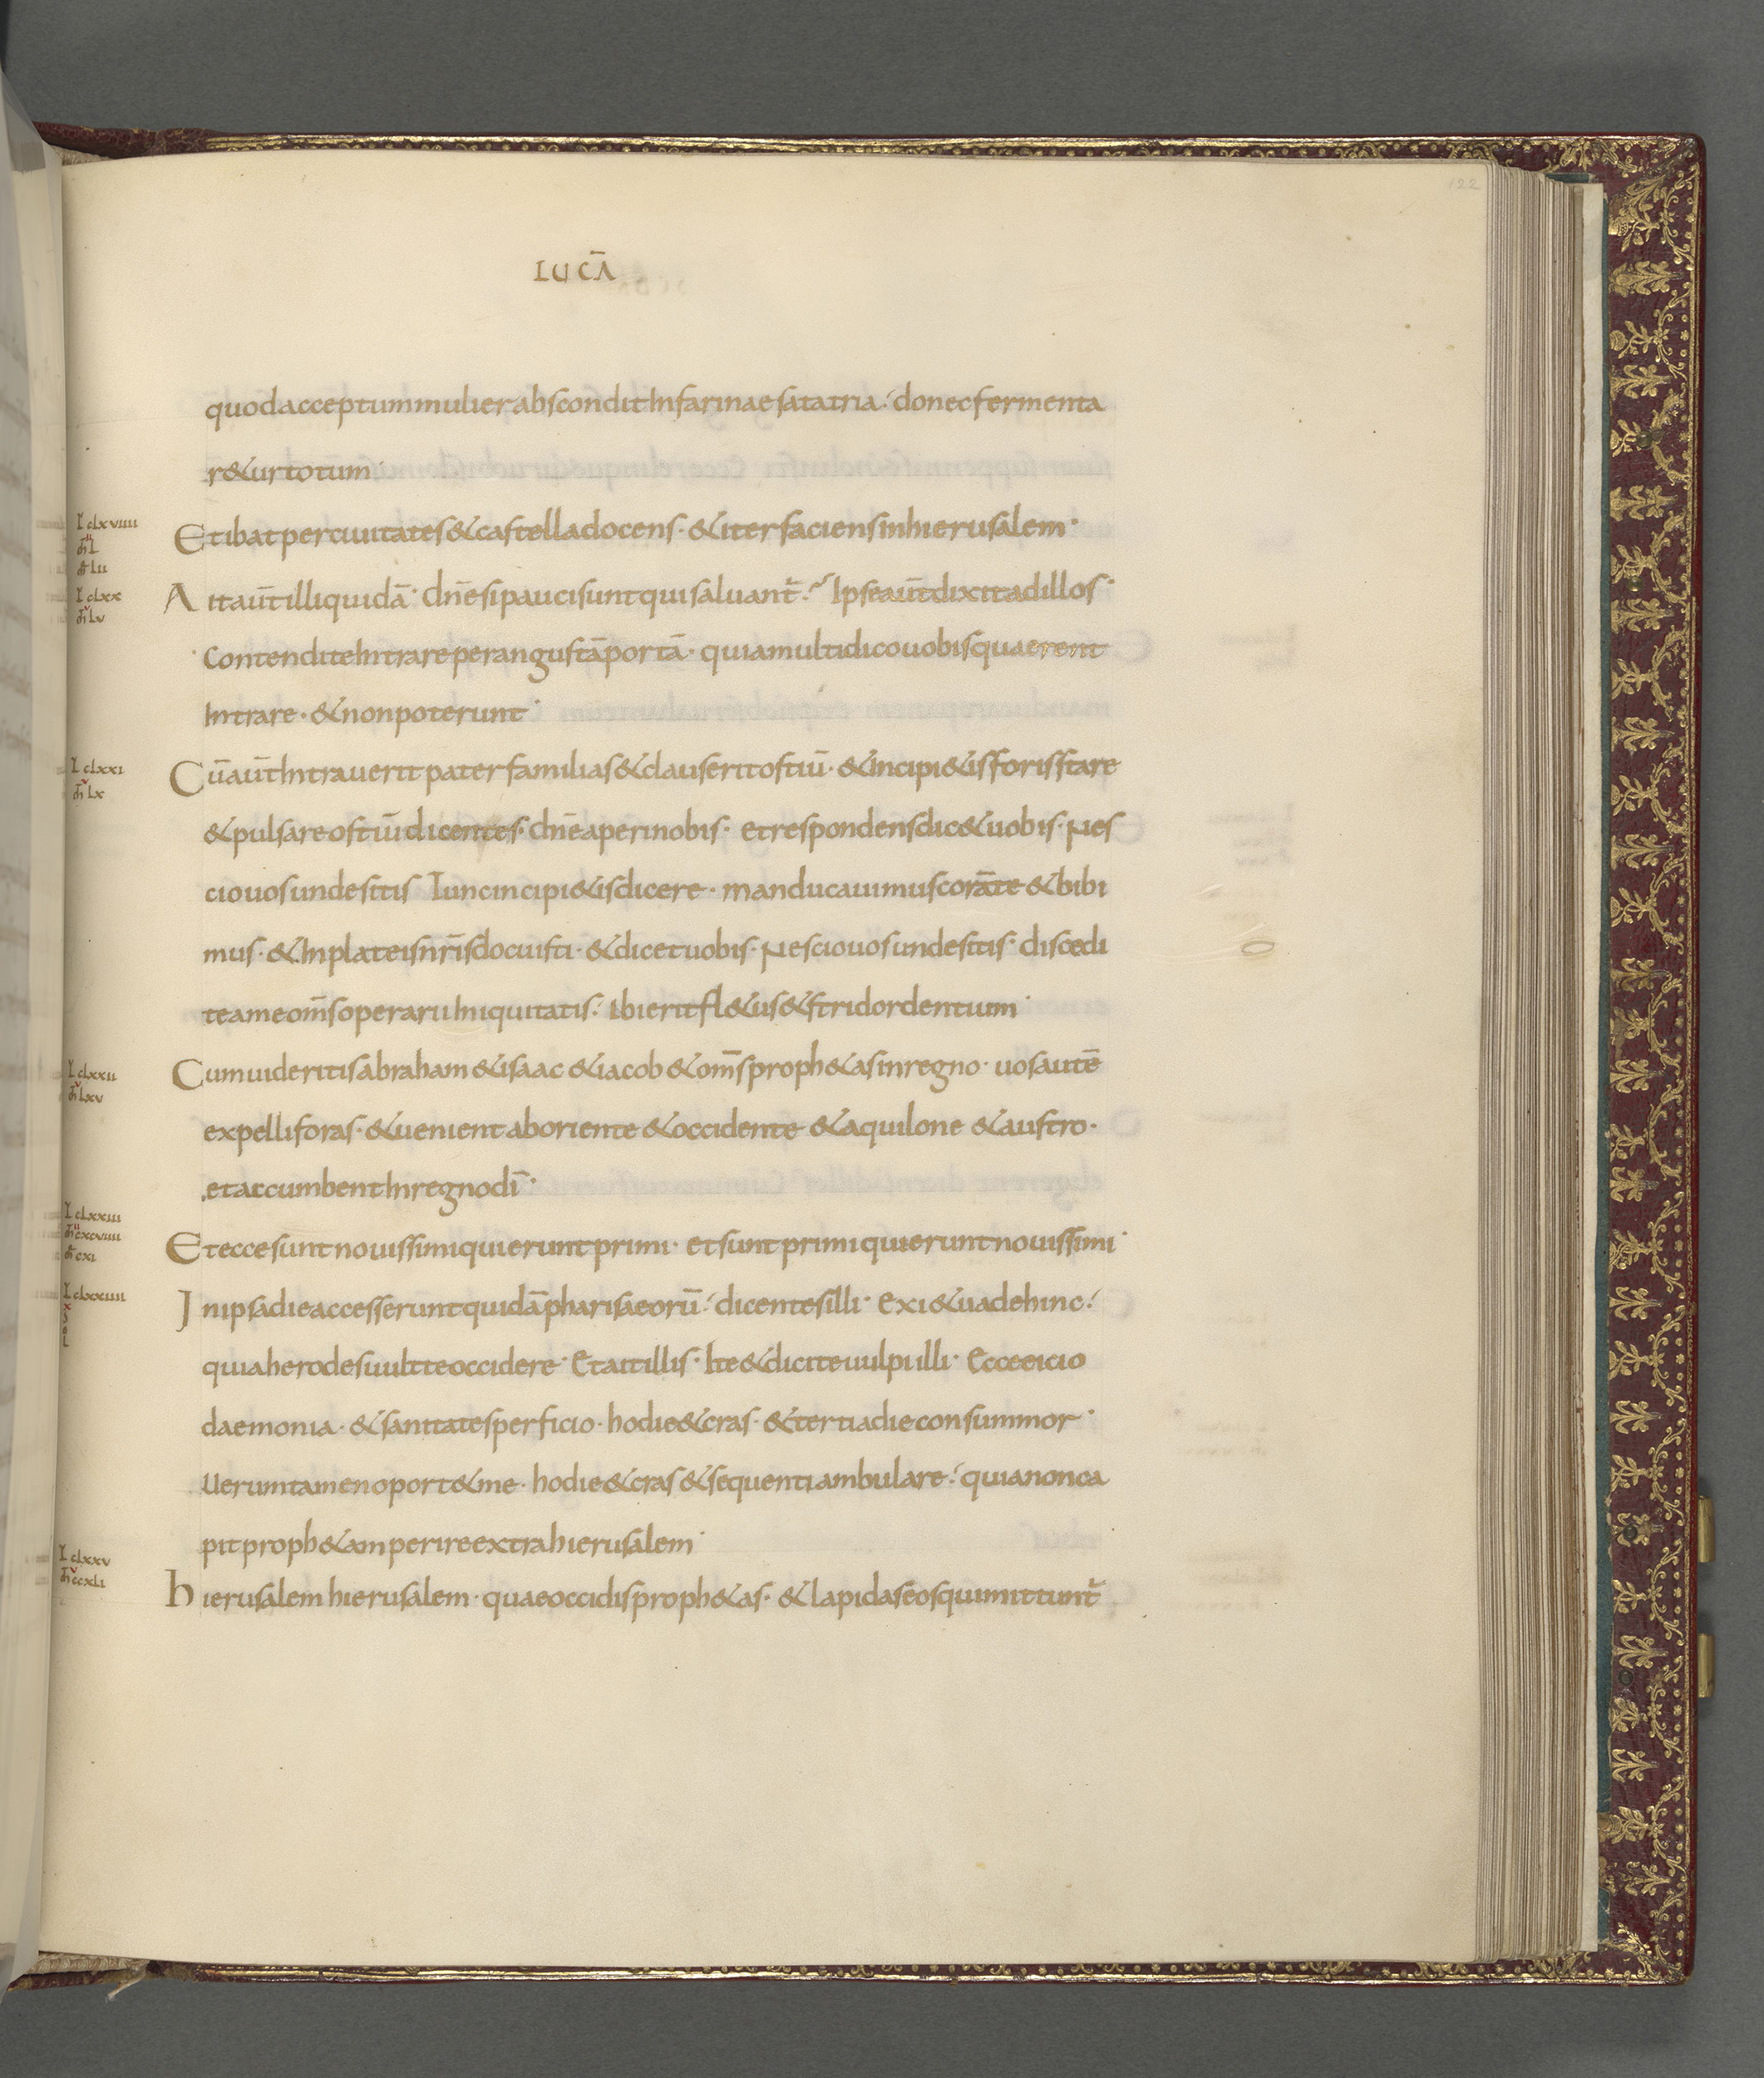 122
LUCĀ
quod acceptum mulier abscondit In farinae sata tria· donec fermenta
r&ur totum·
Et ibat per ciuitates & castella docens· & iter faciens in hierusalem·
L clxviiii
L
Lii
Ait aūt illi quidā· dn̄e si pauci sunt qui saluant̄· Ipse aūt dixit ad illos·
L clxx
Lv
Contendite Intrare per angustā portā· quia multi dico uobis quaerent
Intrare· & non poterunt·
Cū aūt Intrauerit pater familias & clauserit ostiū· & incipi&is foris stare
L clxxi
Lx
& pulsare ostiū dicentes· dn̄e aperi nobis· et respondens dic& uobis· Nes
cio uos unde sitis Tunc incipi&is dicere· manducauimus cora te & bibi
mus· & In plateis nr̄is docuisti· & dicet uobis· Nescio uos unde sitis· discedi
te a me om̄s operarii Iniquitatis· Ibi erit fl&us & stridor dentium·
Cum uideritis abraham & isaac & iacob & om̄s proph&as in regno· uos autē
L clxxii
Lxv
expelli foras· & uenient ab oriente & occidente & aquilone & austro·
et accumbent In regno dī·
Et ecce sunt nouissimi qui erunt primi· et sunt primi qui erunt nouissimi·
L clxxiii
cxcviiii
cxi
In ipsa die accesserunt quidā pharisaeorū· dicentes illi· Exi & uade hinc·
L clxxiiii
x
s
o
L
quia herodes uult te occidere· Et ait illis· Ite & dicite uulpi illi· Ecce eicio
daemonia· & sanitates perficio· hodie & cras· & tertia die consummor·
Uerumtamen oport& me· hodie & cras & sequenti ambulare· quia non ca
pit proph&am perire extra hierusalem·
hierusalem hierusalem· quae occidis proph&as· & lapidas eos qui mittunt̄
L clxxv
ccxLi